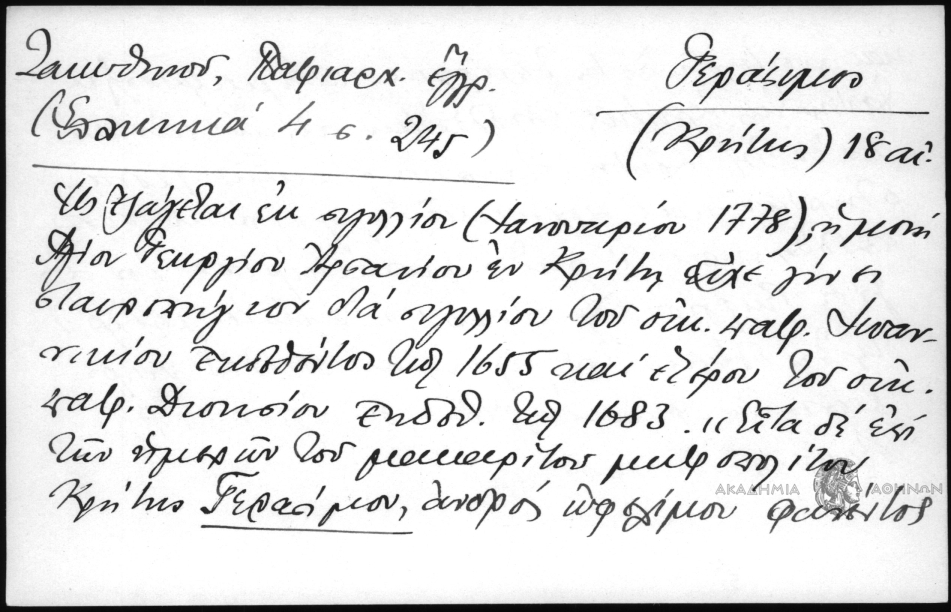 Ζακυθηνοῦ, Πατριαρχ. ἔγγρ.
(Ἑλληνικά 4 σ. 245)
Γεράσιμος
(Κρήτης) 18 αἰ.
Ὡς ἐξάγεται ἐκ σιγιλλίου (Ἰανουαρίου 1778), ἡ μονή
Ἁγίου Γεωργίου Ἀρσανίου ἐν Κρήτῃ εἶχε γίνει
σταυροπήγιον διά σιγιλλίου τοῦ οἰκ. πατρ. Ἰωαν-
νικίου ἐκδοθέντος τῷ 1655 καί ἑτέρου τοῦ οἰκ.
πατρ. Διονυσίου ἐκδοθ. τῷ 1683. "Εἶτα δέ ἐπί
τῶν ἡμερῶν τοῦ μακαρίτου μητροπολίτου
Κρήτης Γερασίμου, ἀνδρός ὠφελίμου φανέντος
ΑΚΑΔΗΜΙΑ ΑΘΗΝΩΝ